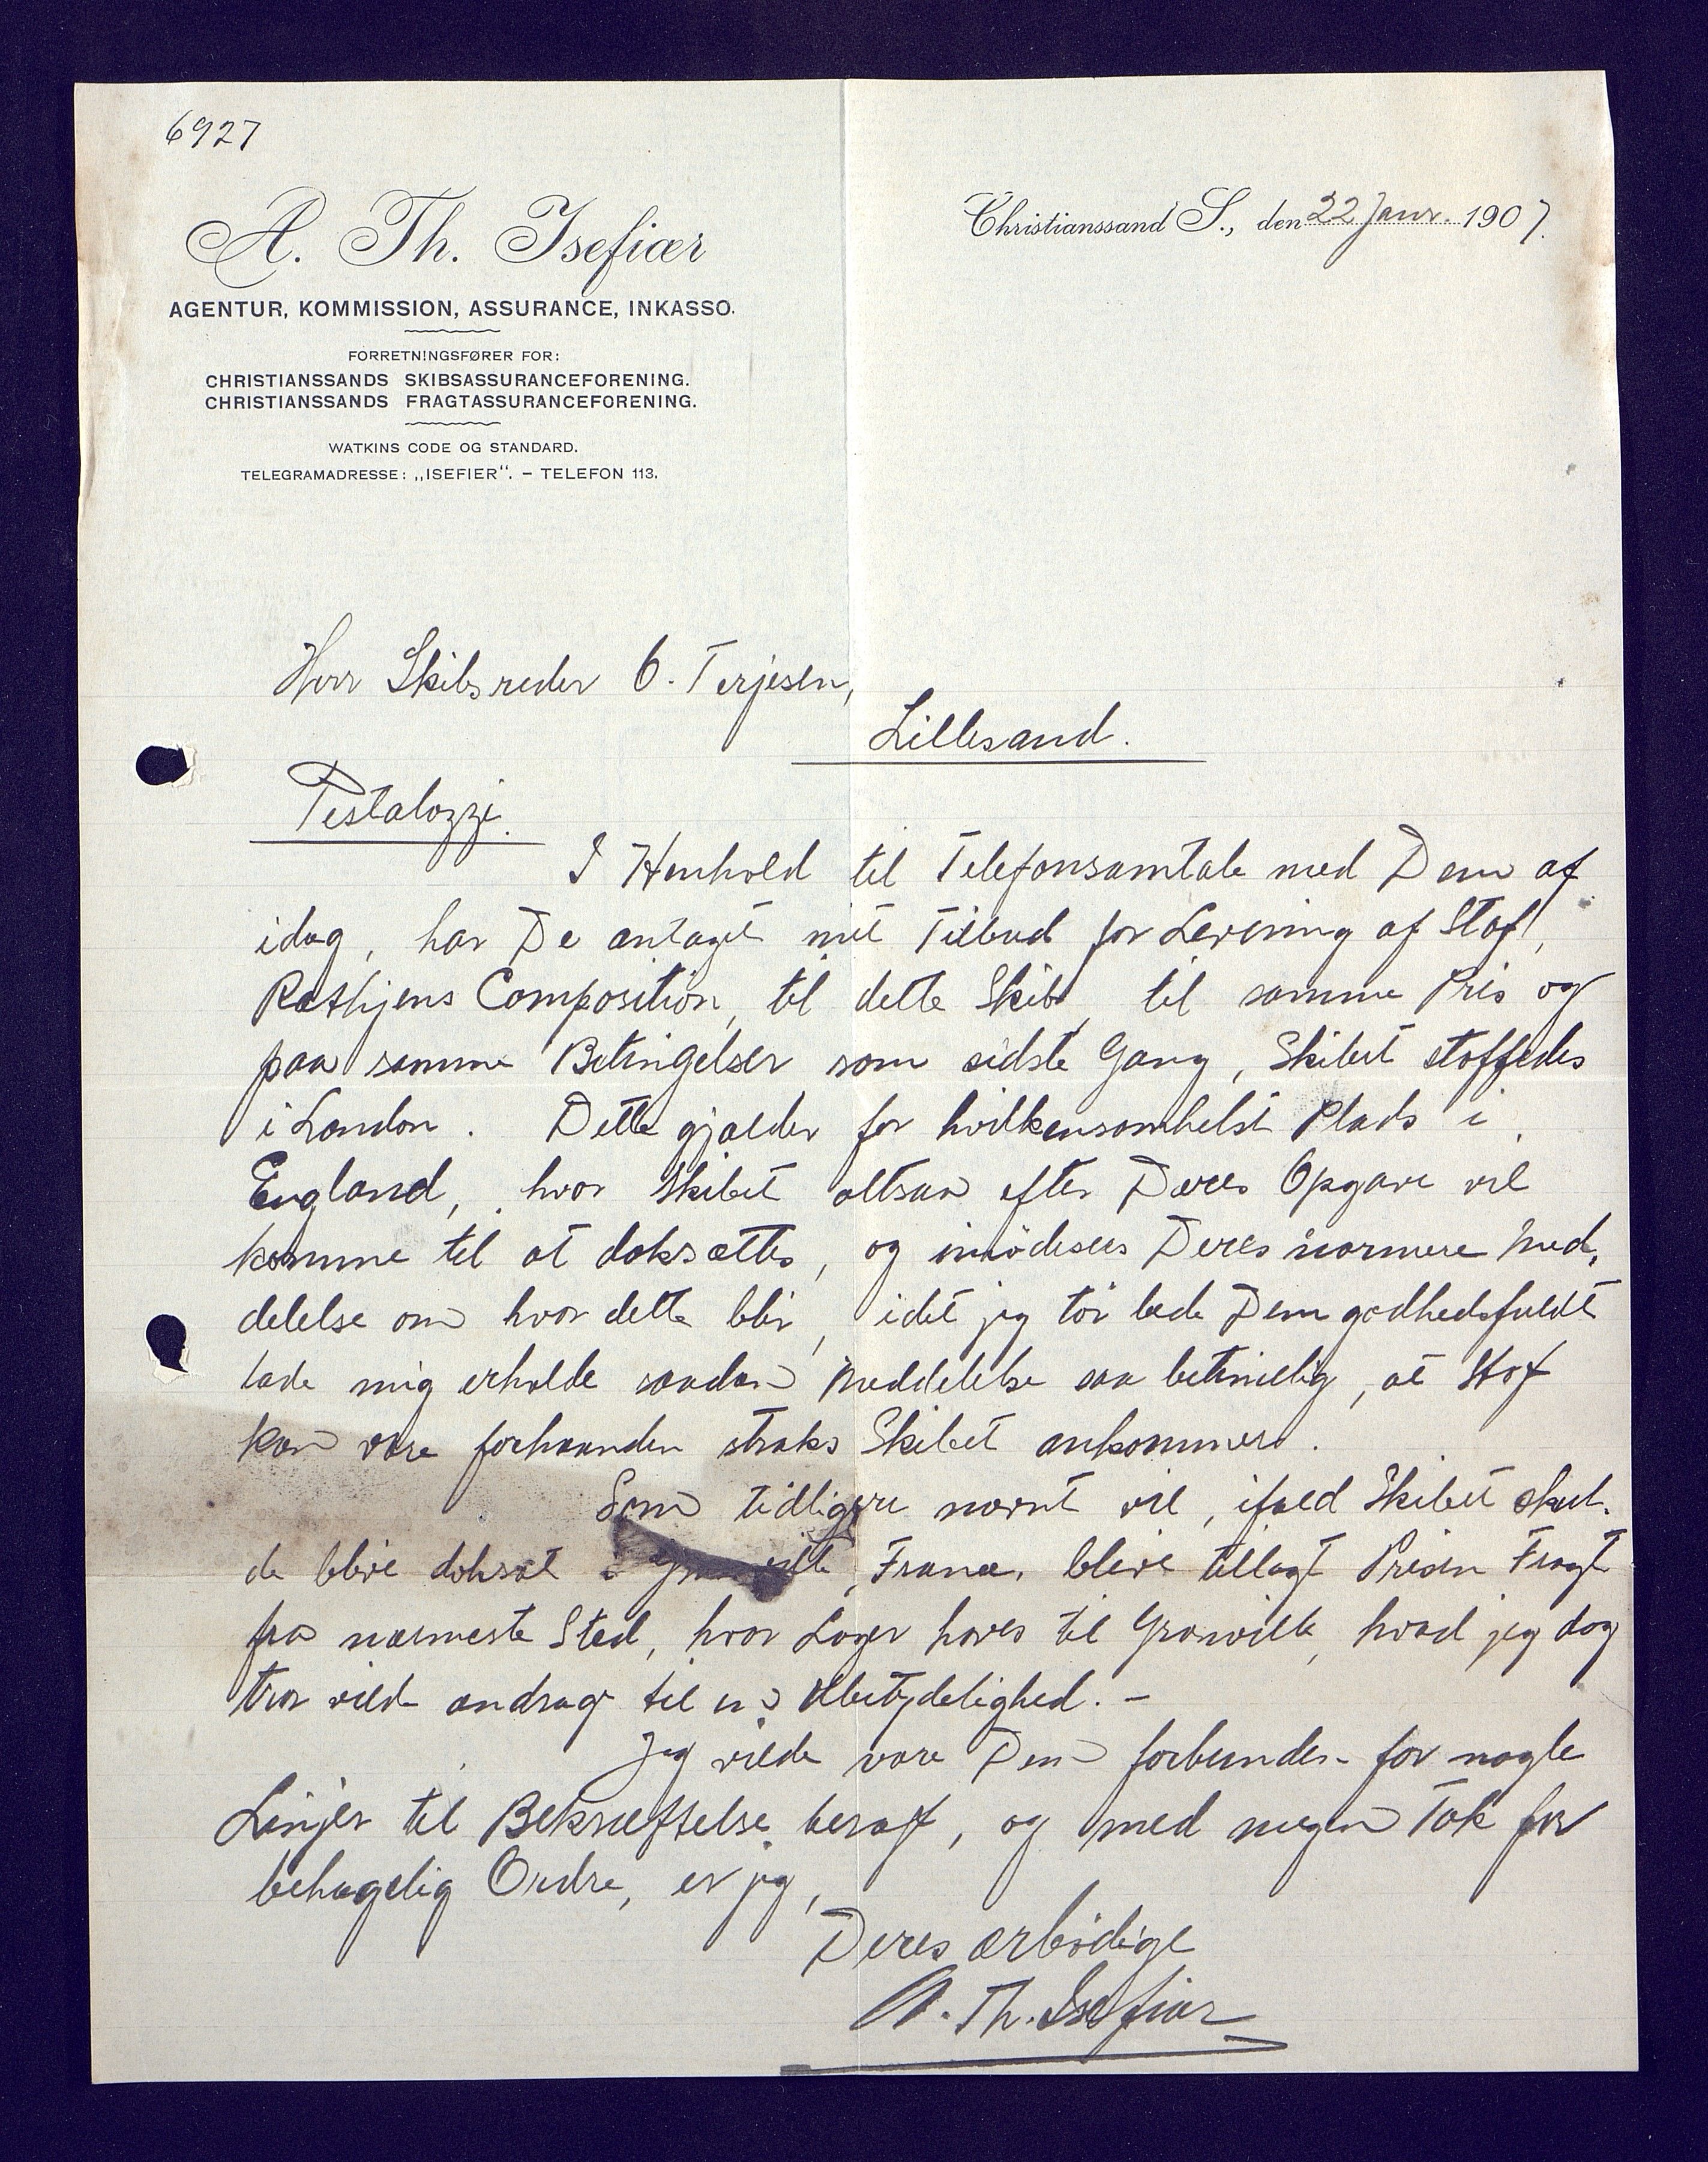 6927
A. Th. Isefiær
Christianssand S., den 22 Janr. 1907.
AGENTUR, KOMMISSION, ASSURANCE, INKASSO.
FORRETNINGSFØRER FOR:
CHRISTIANSSANDS SKIBSASSURANCEFORENING.
CHRISTIANSSANDS FRAGTASSURANCEFORENING.
WATKINS CODE OG STANDARD.
TELEGRAMADRESSE: „ISEFIER“. – TELEFON 113.
Herr Skibsreder O. Terjesen,
Lillesand.
Pestalozzi.
I Henhold til Telefonsamtale med Dem af
idag, har De antaget mit Tilbud for Levering af Stof,
Rathjens Composition, til dette Skib, til samme Pris og
paa samme Betingelser som sidste Gang, Skibet stoffedes
i London. Dette gjælder for hvilkensomhelst Plads i
England, hvor Skibet altsaa efter Deres Opgave vil
komme til at doksættes, og imødesees Deres nærmere Med-
delelse om hvor dette blir, idet jeg tör bede Dem godhedsfuldt
lade mig erholde saadan Meddelelse saa betimelig, at Stof
kan være forhaanden straks Skibet ankommer.
Som tidligere nævnt vil, ifald Skibet skul-
de blive doksat i Granville, France, blive tillagt Prisen Fragt
fra nærmeste Sted, hvor Lager haves til Granville, hvad jeg dog
tror vilde andrage til en Ubetydelighed. –
Jeg vilde være Dem forbunden for nogle
Linjer til Bekræftelse heraf, og med megen Tak for
behagelig Ordre, er jeg,
Deres ærbödige
A. Th. Isefiær